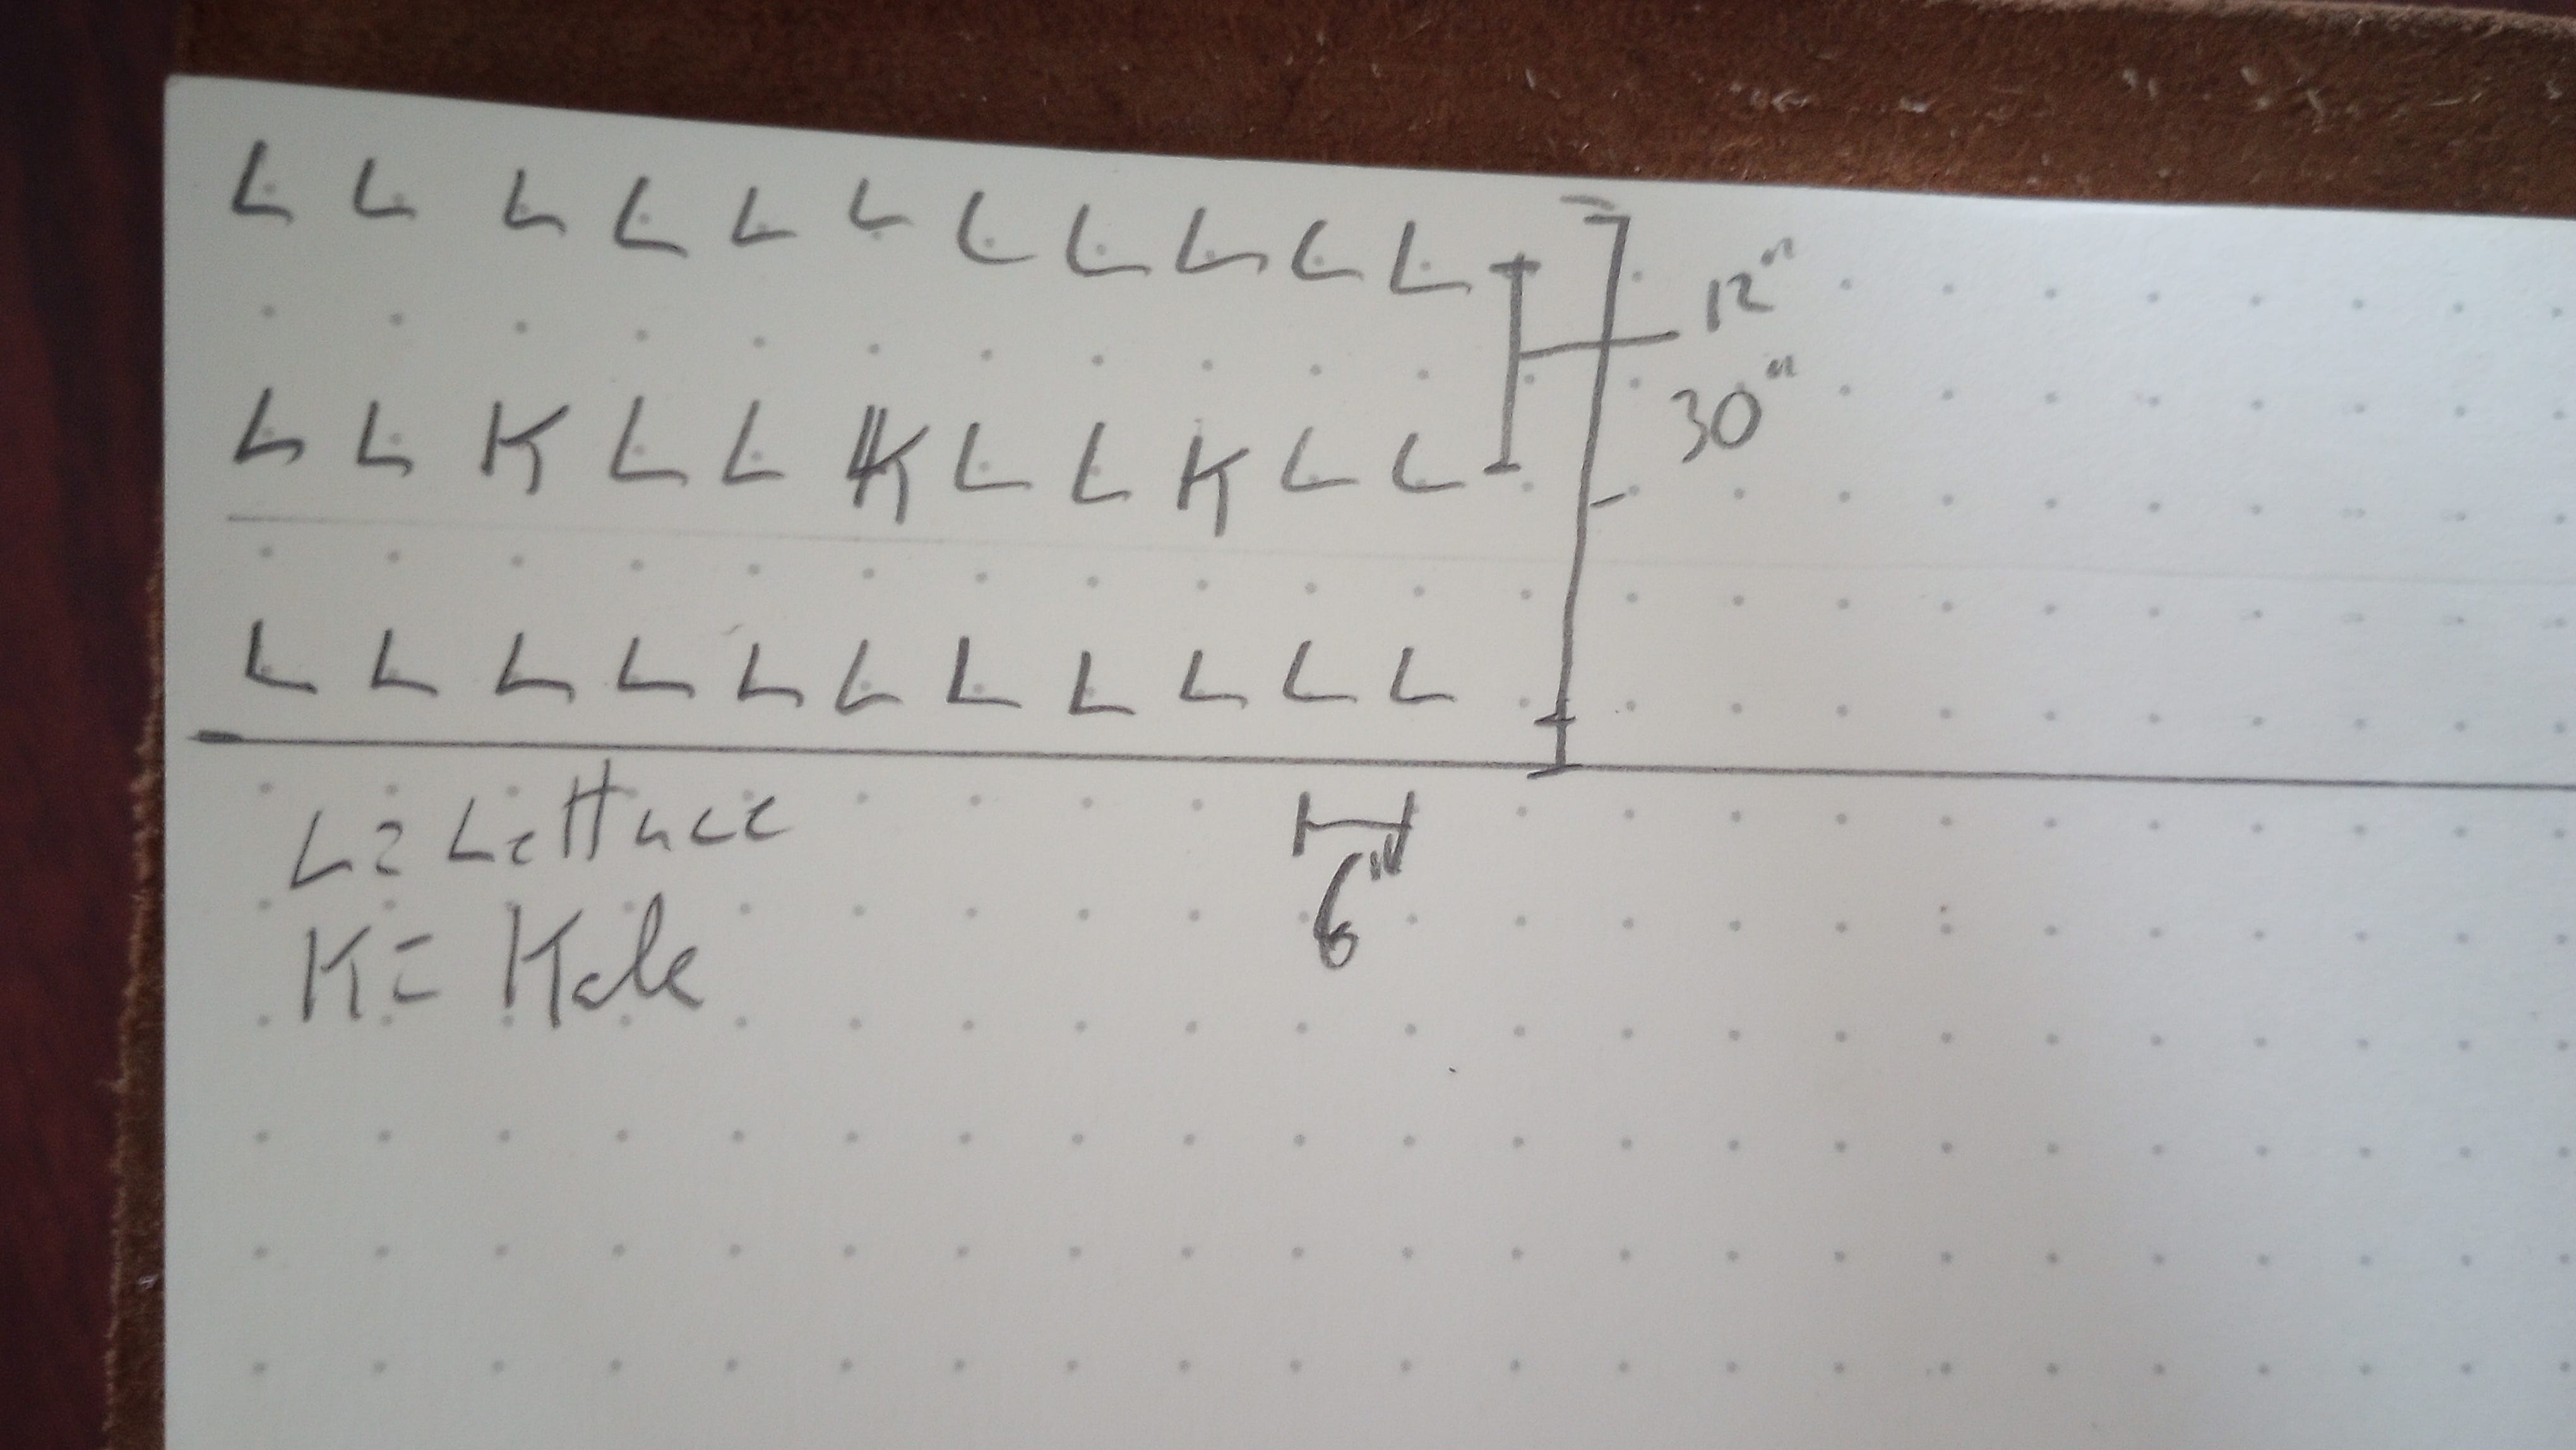 L L L L L L L L L L L
12"
30"
L L K L L K L L K L L
L L L L L L L L L L L
L= Lettuce
6"
K= Kale